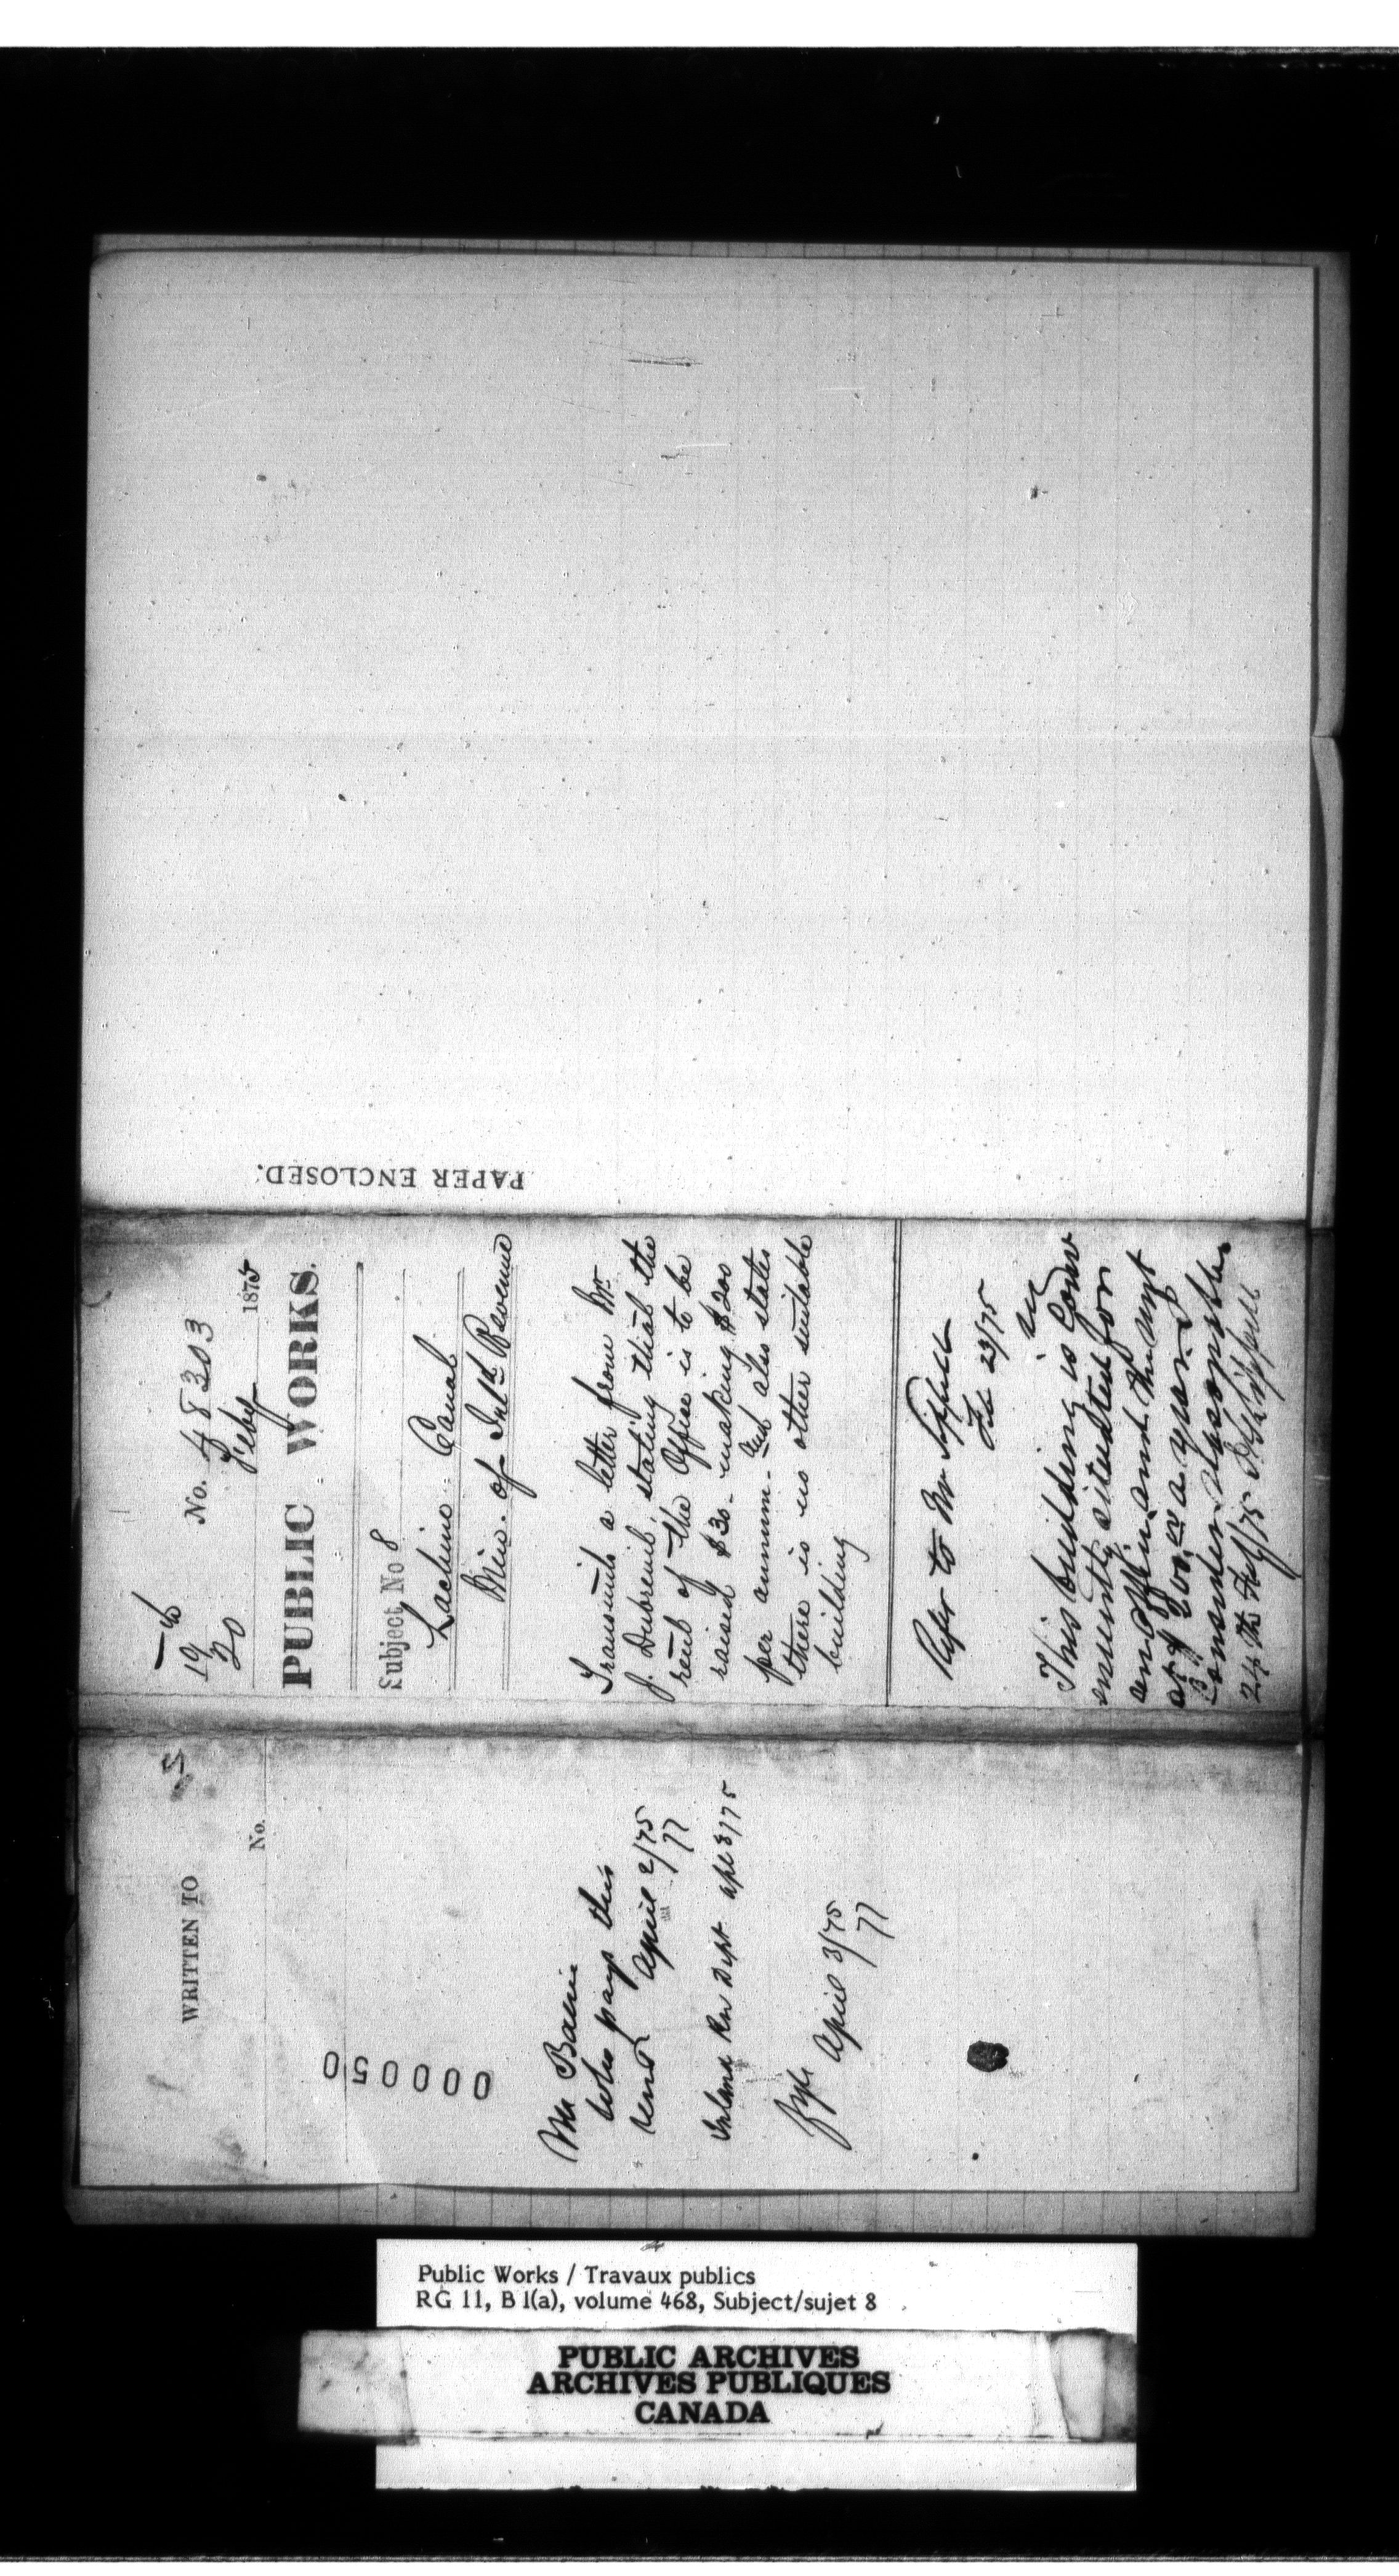 PAPER ENCLOSED.
19
20
No. 48303
Feby 1875
PUBLIC WORKS.
Subject No 8
Lachine Canal
Min. of Inld Revenue
Transmits a letter from Mr
J. Dubreuil, stating that the
rent of the Office is to be
raised $30 - making $200
per annum - and also states
there is no other suitable
building
Refer to Mr Sippell
Feb 23/75
This building is conv
eniently situated for
an office and the rent
of $200.00 a year is
considered reasonable
24th Feby/75
WRITTEN TO
No.
000050
Mr Baine
who pays this
rent April 2/75
77
Inland Rev Dept apl 3/75
April 3/75
77
Public Works / Travaux publics
RG 11, B 1(a), volume 468, Subject/sujet 8
PUBLIC ARCHIVES
ARCHIVES PUBLIQUES
CANADA